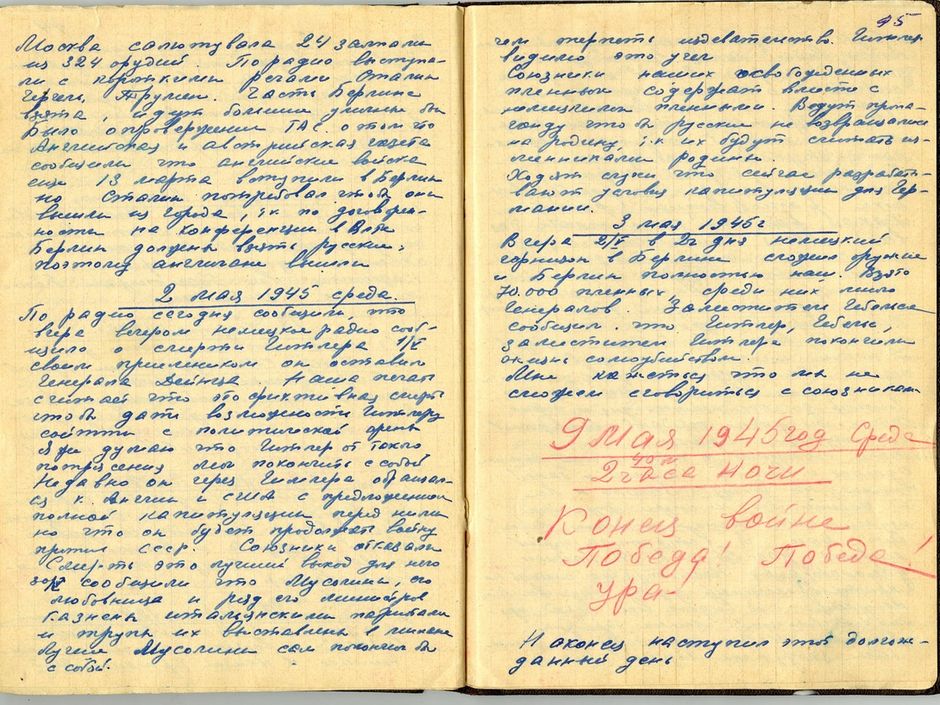 Москва салютувала 24 залпами
из 324 орудий. По радио выступа-
ли с короткими речами Сталин
Черчель, Трумен. Часть Берлина
взята, идут большие уличные бои
Было опровержение ТАС. о том что
Английская и австрийская газета
сообщили что английские войска
еще 13 марта вступили в Берлин
но Сталин потребовал чтобы они
вышли из города, т.к. по договорен-
ности на конференции в
Берлин должны взять русские,
поэтому англичане вышли
2 мая 1945 среда.
По радио сегодня сообщили, что
вчера вечером немецкое радио сооб-
щило о смерти Гитлера 1/V
своим приемником он оставил
Генерала Дейница Наша печать
считает что это фиктивная смерть
чтобы дать возможность Гитлеру
сойтти с политической арены
Я же думаю что Гитлер от такого
потрясения мог покончить с собой
Недавно он через Гимлера обращал-
ся к Англии и США с предложением
полной капитуляции перед ними
но что он будет продолжать войну
против СССР. Союзники отказали
Смерть это лучший выход для него
сообщили что Мусолини, его
любовница и ряд его министров
казнены итальянскими партизанами
и трупы их выставлены в Милане
Лучше Мусолини сам покончил бы
с собой.
95
чем терпеть издевательство. Гитлер
видимо это учел
Союзники наших освобожденных
пленных содержат вместе с
немецкими пленными. Ведут пропа-
ганду что бы русские не возвращались
на родину, т.к. их будут считать из-
менниками родины.
Ходят слухи что сейчас разрабаты-
вают условия капитуляции для Гер-
мании.
3 мая 1945г
Вчера 2/V в 2ч дня немецкий
горнизон в Берлине сложил оружие
и Берлин полностью наш. Взято
70.000 пленных, среди них много
Генералов. Заместитель Гебельса
сообщил что Гитлер, Гебельс,
заместитель Гитлера покончили
жизнь самоубийством!
Мне кажеться что мы не
сможем сговориться с союзниками
9 Мая 1945 год Среда
2 часа 40 м Ночи
Конец войне
Победа! Победа!
Ура-
Наконец наступил этот долгож-
данный день